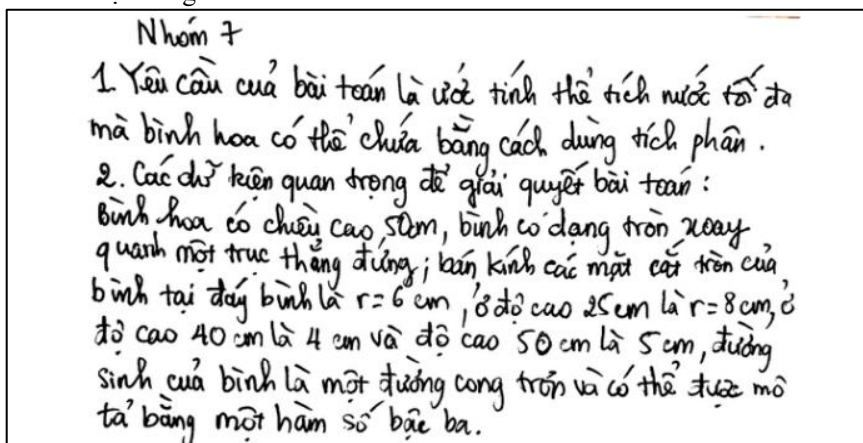 Nhóm 7
1. Yêu cầu cuả bài toán là ước tính thể tích nước tối đa
mà bình hoa có thể chứa bằng cách dùng tích phân.
2. Các dữ kiện quan trọng để giải quyết bài toán:
Bình hoa có chiều cao 50cm, bình có dạng tròn xoay
quanh một trục thẳng đứng; bán kính các mặt cắt tròn của
bình tại đáy bình là r=6 cm, ở độ cao 25cm là r=8cm, ở
độ cao 40 cm là 4 cm và độ cao 50 cm là 5cm, đường
sinh cuả bình là một đường cong trơn và có thể được mô
tả bằng một hàm số bậc ba.